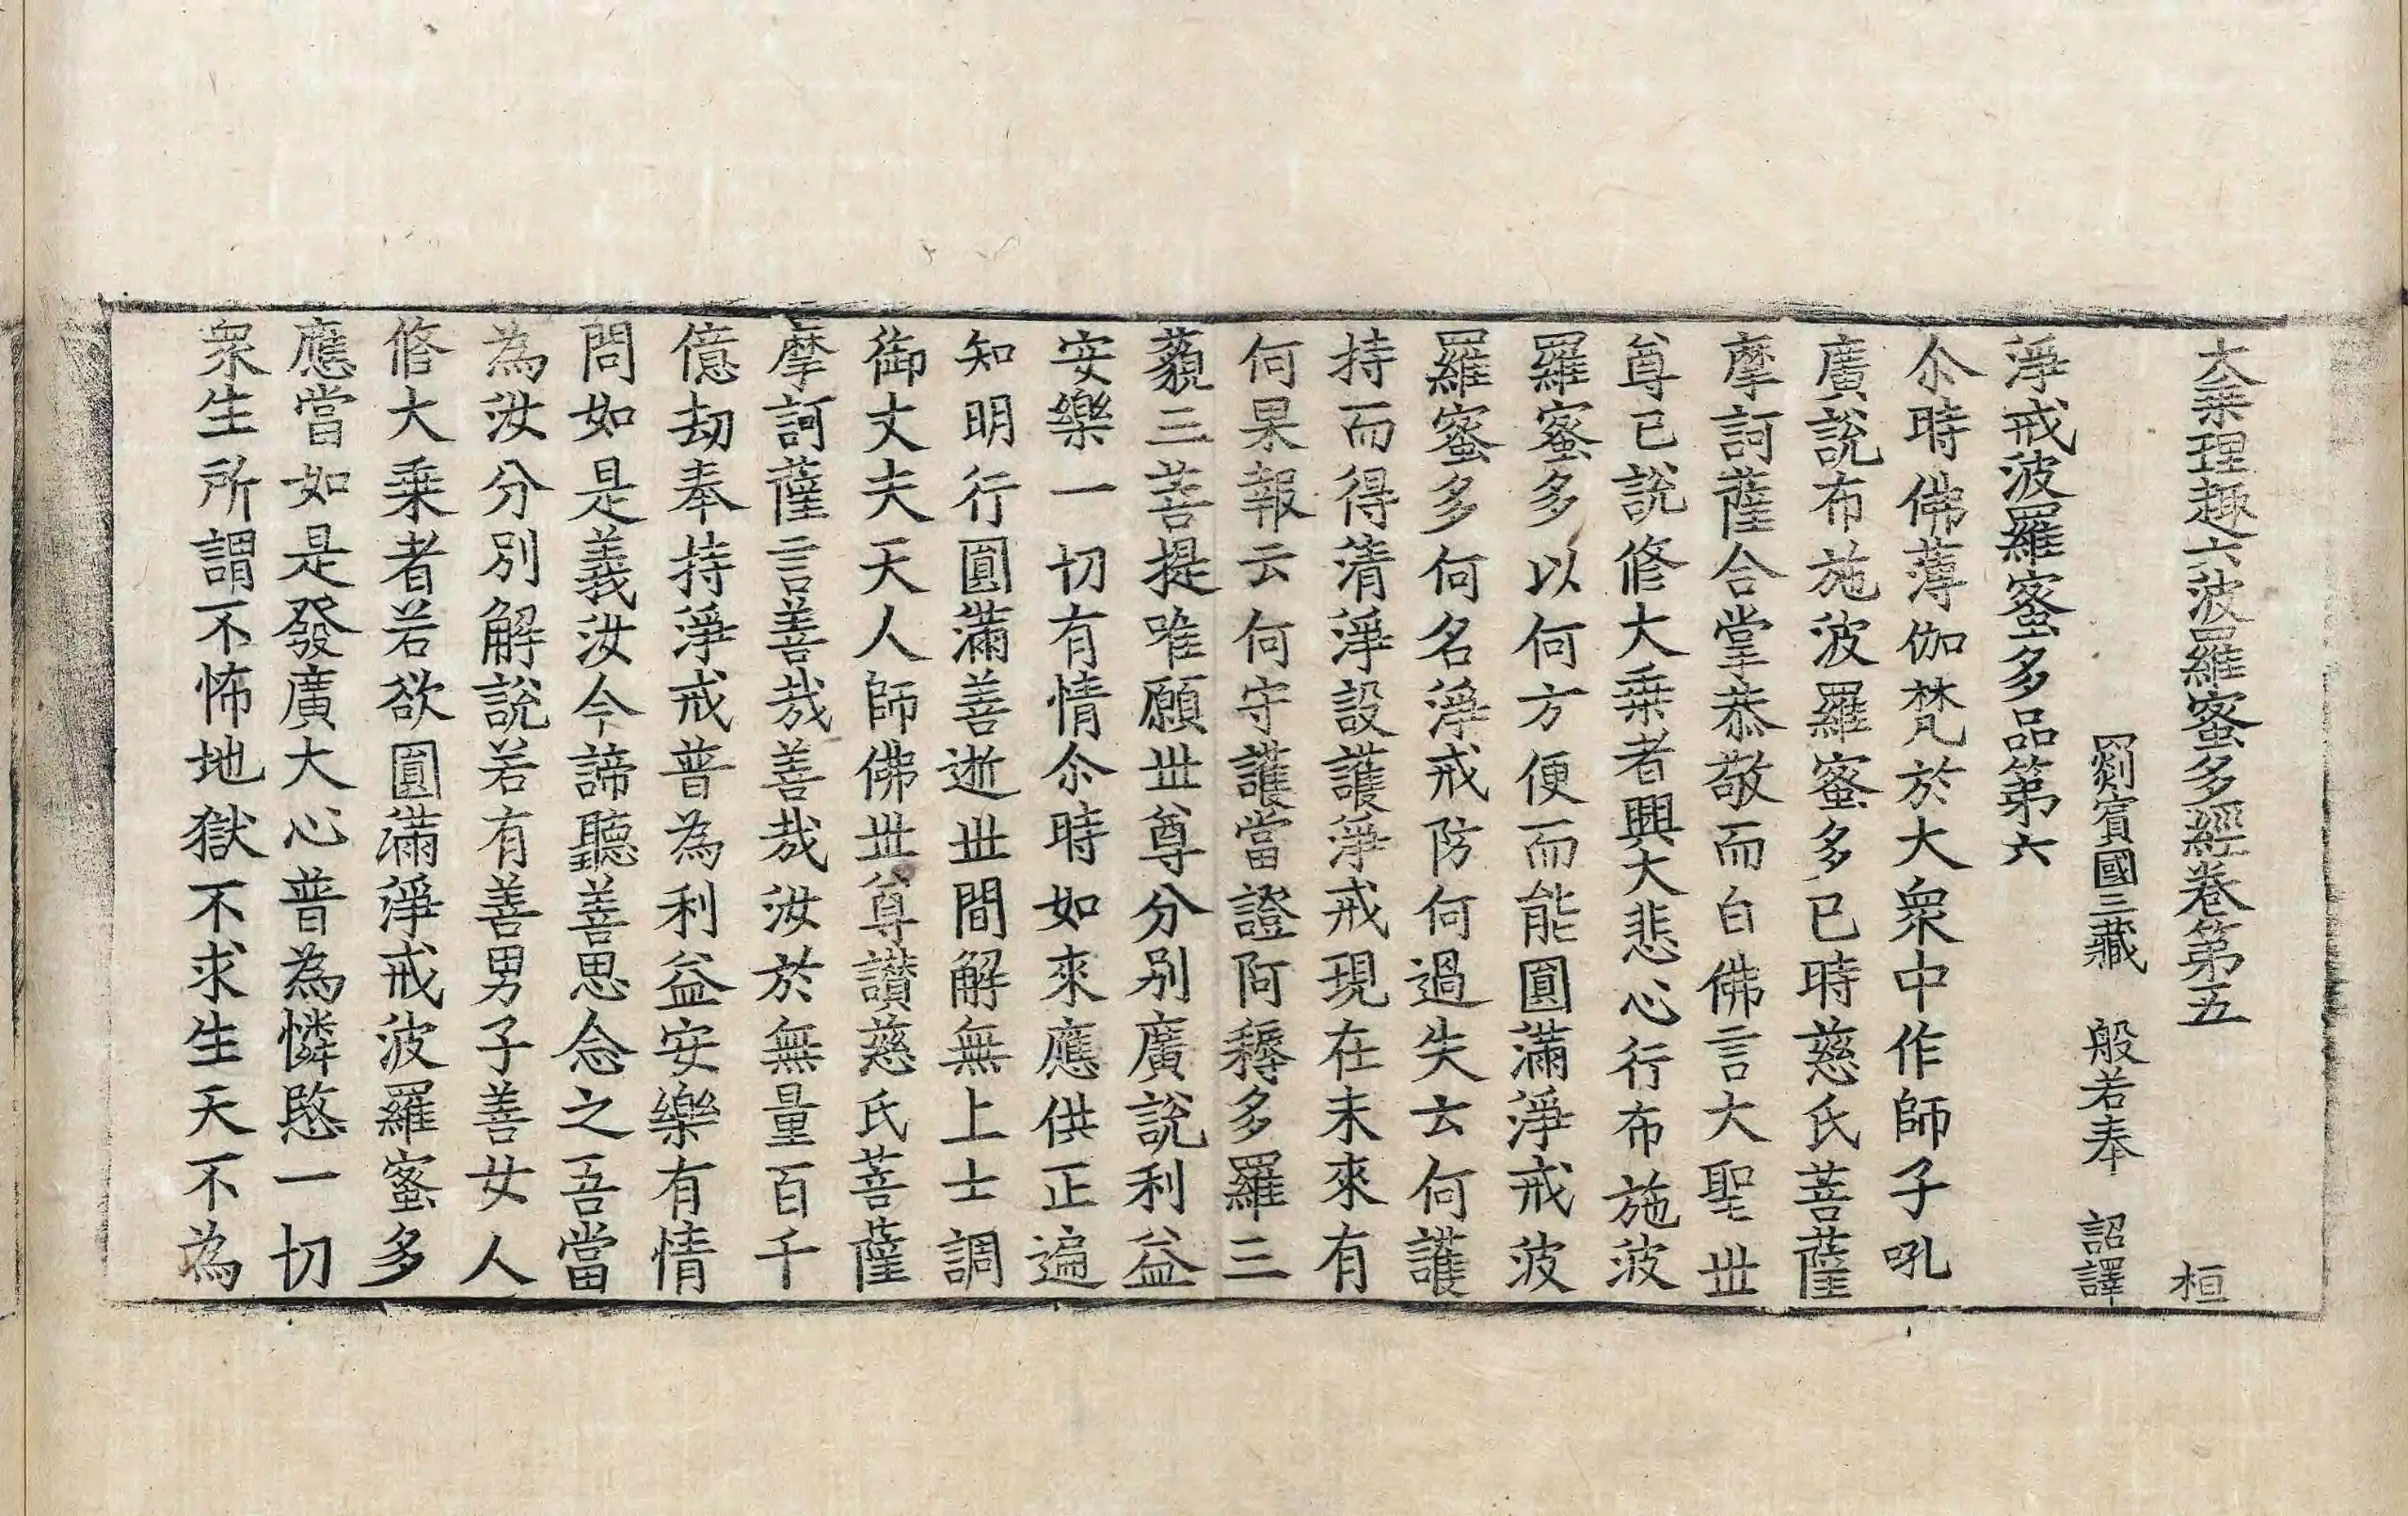 大乗理趣六波羅蜜多經卷第五　桓
罽賓國三藏　般若奉　詔譯
淨戒波羅蜜多品第六
尒時佛薄伽梵於大衆中作師子吼
廣説布施波羅蜜多已時慈氏菩薩
摩訶薩合掌恭敬而白佛言大聖世
尊已說修大乗者興大悲心行布施波
羅蜜多以何方便而能圓滿淨戒波
羅蜜多何名淨戒防何過失云何護
持而得清淨設護淨戒現在未來有
何果報云何守護當證阿耨多羅三
藐三菩提唯願世尊分別廣說利益
安樂一切有情尒時如來應供正遍
知明行圓滿善逝世間解無上士調
御丈夫天人師佛世尊讃慈氏菩薩
摩訶薩言善哉善哉汝於無量百千
億劫奉持淨戒普為利益安樂有情
問如是義汝今諦聽善思念之吾當
為汝分別解說若有善男子善女人
修大乗者若欲圓滿淨戒波羅蜜多
應當如是發廣大心普為憐愍一切
衆生所謂不怖地獄不求生天不為